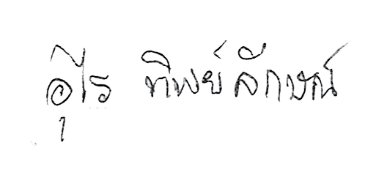 อุไร ทิพย์ลักษณ์